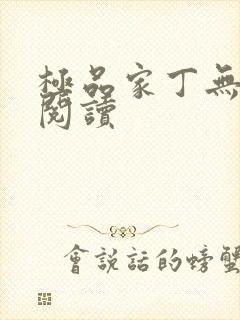 極品家丁無
閱讀
會說話的螃蟹